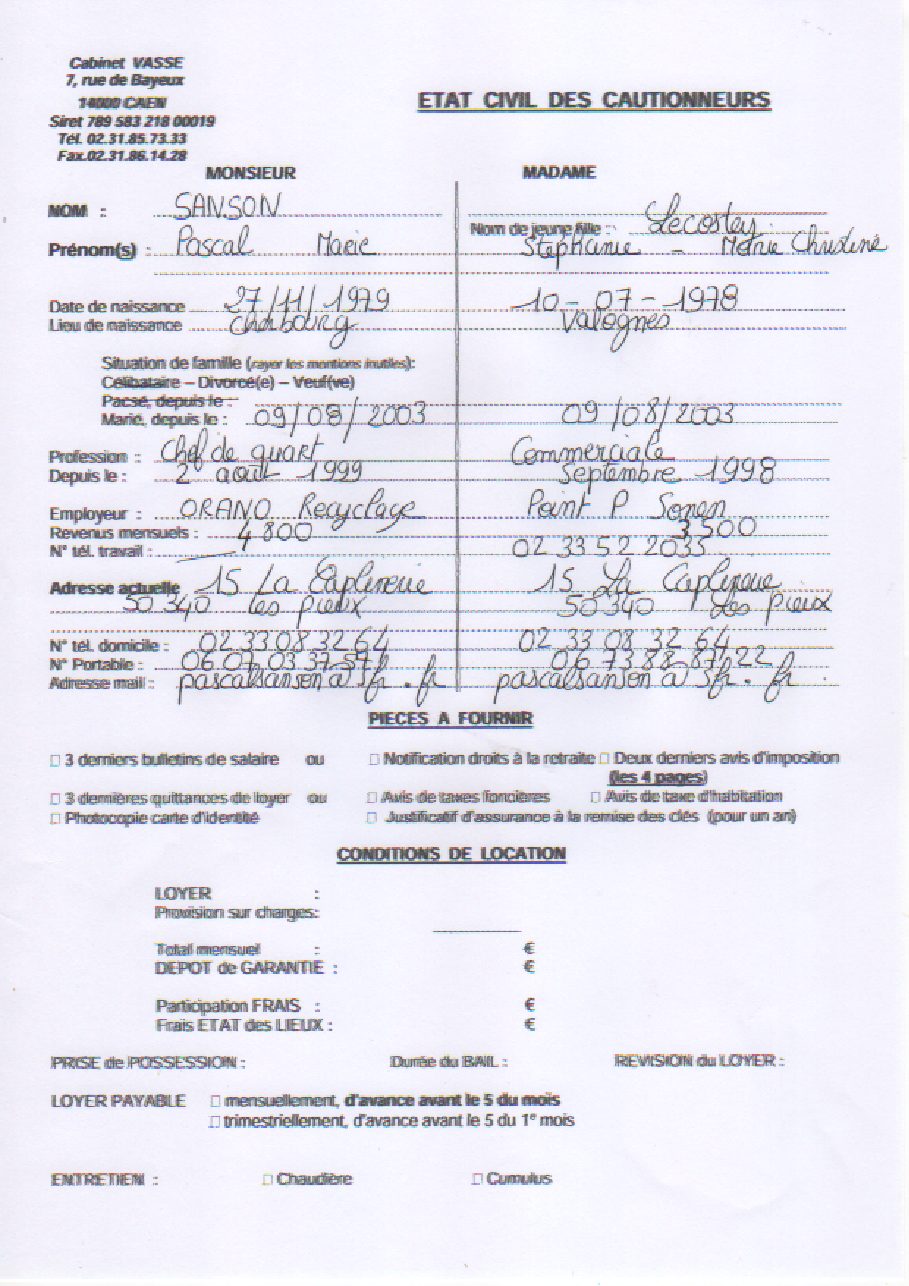 Cabinet VASSE
7, rue de Bayeux
14000 CAEN
Siret 789 583 218 00019
Tél. 02.31.85.73.33
Fax.02.31.86.14.28
ETAT CIVIL DES CAUTIONNEURS
MONSIEUR MADAME
NOM : SANSON
Nom de jeune fille : Lecostey
Prénom(s) : Pascal Marie Stéphanie - Marie Christine
Date de naissance 27/11/1979 10-07-1978
Lieu de naissance Cherbourg Valognes
Situation de famille (rayer les mentions inutiles):
Célibataire – Divorcé(e) – Veuf(ve)
Pacsé, depuis le :
Marié, depuis le : 09/08/2003 09/08/2003
Profession : Chef de quart Commerciale
Depuis le : 2 août 1999 Septembre 1998
Employeur : ORANO Recyclage Point P
Revenus mensuels : 4 800 3 500
N° tél. travail : 02 33 52 2035
Adresse actuelle 15 La 15 La
50 340 les pieux 50340 les pieux
N° tél. domicile : 02 33 08 32 64 02 33 08 32 64
N° Portable : 06 07 03 37 57 06 73 88 87 22
Adresse mail : pascalsanson à sfr.fr pascalsanson à sfr.fr
PIECES A FOURNIR
□ 3 derniers bulletins de salaire ou □ Notification droits à la retraite □ Deux derniers avis d'imposition
(les 4 pages)
□ 3 dernières quittances de loyer ou □ Avis de taxes foncières □ Avis de taxe d'habitation
□ Photocopie carte d'identité □ Justificatif d'assurance à la remise des clés (pour un an)
CONDITIONS DE LOCATION
LOYER :
Provision sur charges:
Total mensuel : €
DEPOT de GARANTIE : €
Participation FRAIS : €
Frais ETAT des LIEUX : €
PRISE de POSSESSION : Durée du BAIL : REVISION du LOYER :
LOYER PAYABLE □ mensuellement, d'avance avant le 5 du mois
□ trimestriellement, d'avance avant le 5 du 1e mois
ENTRETIEN : □ Chaudière □ Cumulus